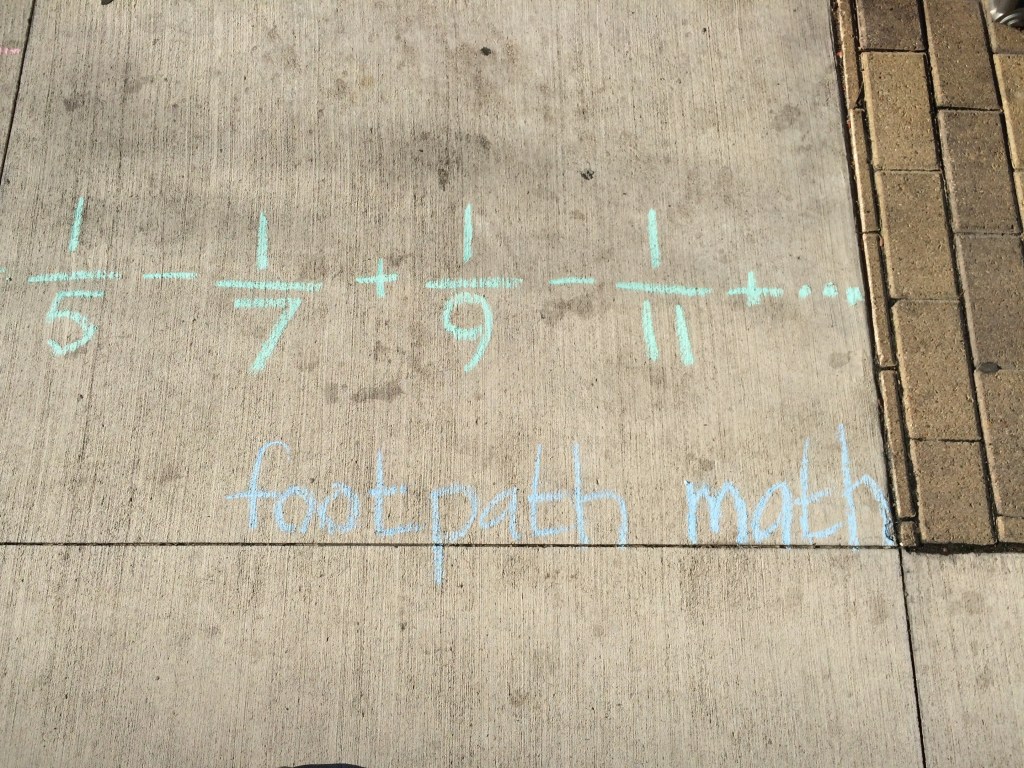 1/5 − 1/7 + 1/9 − 1/11 + ...
footpath math